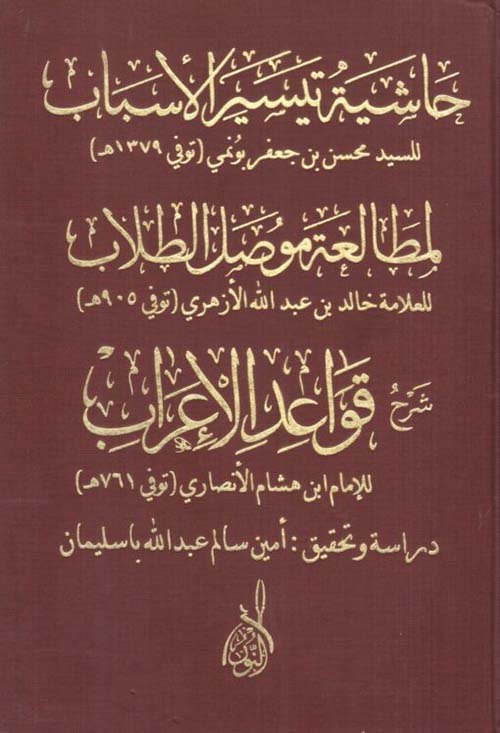 حاشية تيسير الأسباب
للسيد محسن بن جعفر بونمي (توفي ١٣٧٩هـ)
لمطالعة موصل الطلاب
للعلامة خالد بن عبد الله الأزهري (توفي ٩٠٥هـ)
شرح قواعد الإعراب
للإمام ابن هشام الأنصاري (توفي ٧٦١هـ)
دراسة وتحقيق : أمين سالم عبد الله باسليمان
النور